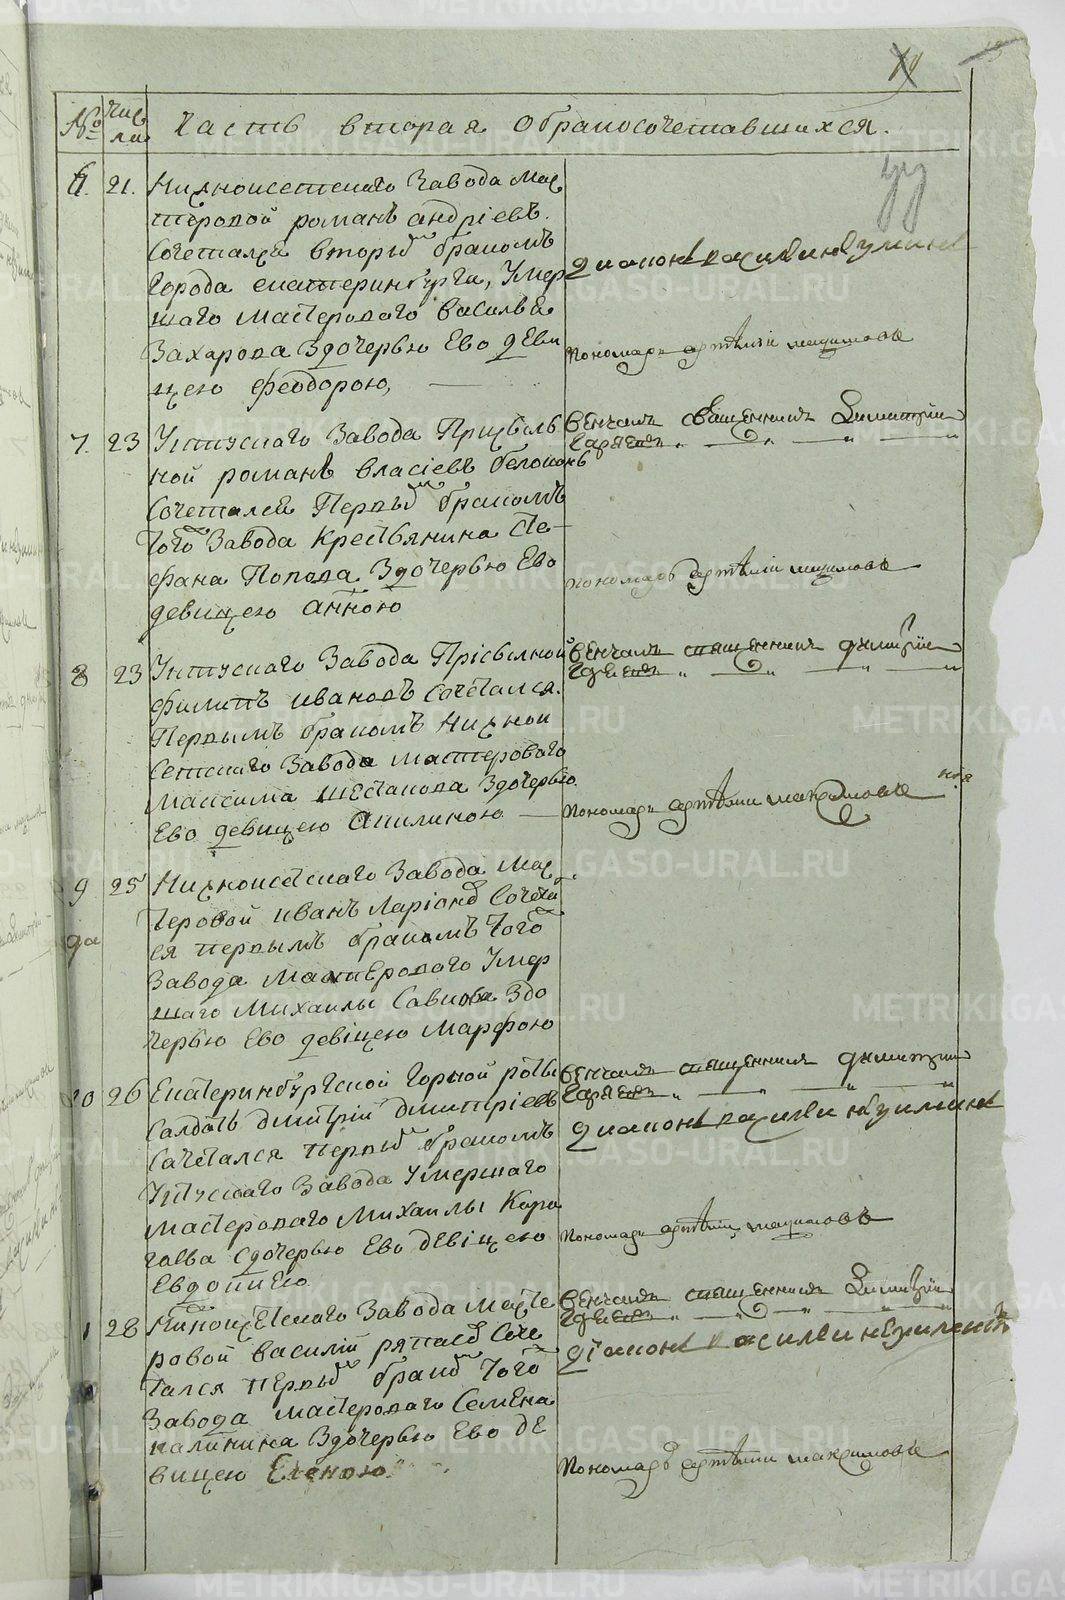 № Чис ла Часть вторая обракосочетавшихся.
6. 21. Нижноисетскаго Завода Мас
теровой романъ андріевъ.
Сочетался вторымъ бракомъ
города екатеринбурга, Умер
шаго мастероваго василья
Захарова Здочерью Ево деви
цею феодорою,
диаконъ василеи
Пономарь артѣміи максимовъ
7. 23 Уктускаго Завода Присыль
ной романъ власіевъ
Сочетался Первымъ бракомъ
Того Завода Крестьянина Сте-
фана Попова Здочерью Ево
девицею Анною
вѣнчалъ священникъ Димитрій
Пономарь артѣміи максимовъ
8 23 Уктускаго Завода Прісылной
филипъ ивановъ Сочетался
Первымъ бракомъ Нижнои
Сетскаго Завода мастероваго
Максима шестакова Здочерью
Ево девицею Акилиною
вѣнчалъ священникъ димитріи
Пономарь артѣмии максимовъ
9 25 Нижноисетскаго Завода Мас
теровой иванъ Ларіоновъ Сочета
ся первымъ бракомъ Того
Завода Мастероваго Умер
шаго Михаилы Савиова Здо
черью Ево девіцею Марфою
10 26 Екатеринбургской горной роты
Салдатъ дмитрій дмитріевъ
Сочетался первымъ бракомъ
Уктускаго Завода Умершаго
мастероваго Михаилы Кора
Сдочерью Ево девіцею
Евдокиею
вѣнчалъ священникъ димитріи
диаконъ василеи
Пономарь артѣмии максимовъ
1 28 Завода масте
ровой василій Соче
тался первымъ бракомъ Того
Завода мастероваго Семена
калинина Здочерью Ево де
вицею Еленою
вѣнчалъ священникъ Димитріи
діаконъ василеи
Пономарь артѣмии максимовъ
METRIKI.GASO-URAL.RU